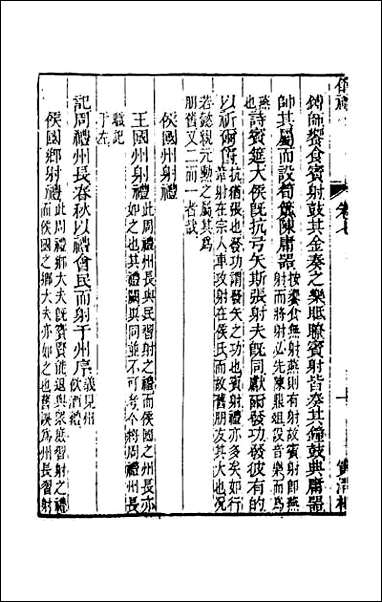 鎛師饗食賓射鼓其金奏之樂眡瞭賓射皆奏其鐘鼓典庸器
帥其屬而設筍簴陳庸器按饗食無射燕則有射故賓射卽燕
射而將射必先陳鼎俎設音樂而爲
燕
詩賓筵大侯既抗弓矢斯張射夫既同獻爾發功發彼有的
以祈爾爵抗猶張也發功謂發矢之功也賓射禮亦多矣如行
葦射在宗人車攻射在侯氏而故舊朋友其大也况
若懿親元勳之屬其爲
朋舊又二而一者哉
侯國州射禮
王國州射禮此周禮州長與民習射之禮而侯國之州長亦
如之也其禮闕與同並不可考今將周禮州長
職記
于左
記周禮州長春秋以禮會民而射于州序義見州
飲酒禮
侯國鄉射禮此周禮鄉大夫既賓賢能退與衆庶習射之禮
而侯國之鄉大夫亦如之也舊誤爲州長習射